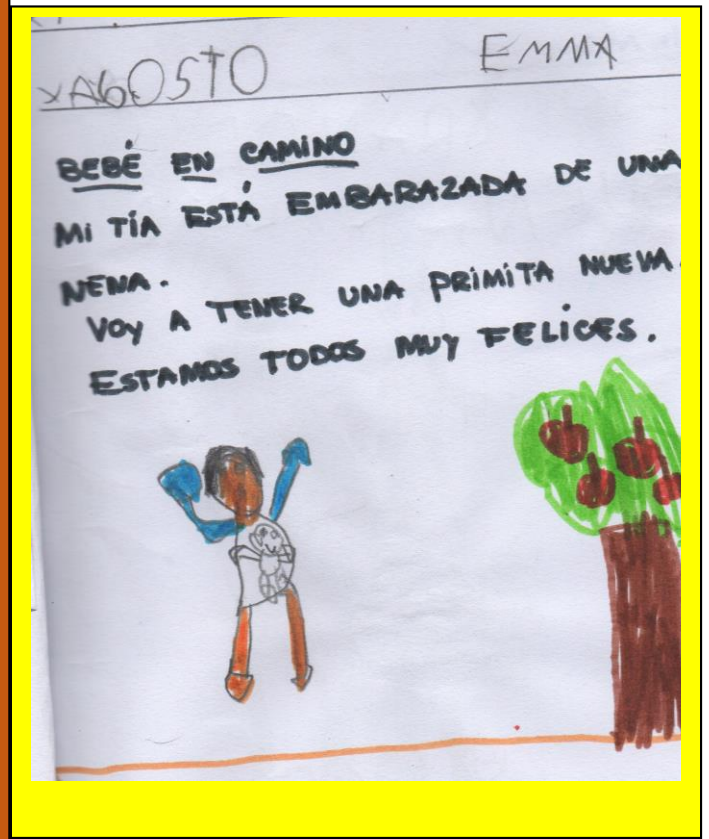 AGOSTO EMMA
BEBÉ EN CAMINO
MI TÍA ESTÁ EMBARAZADA DE UNA
NENA.
VOY A TENER UNA PRIMITA NUEVA.
ESTAMOS TODOS MUY FELICES.